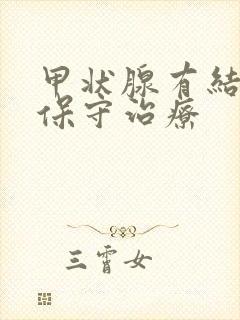 甲状腺有結
保守治療
三霄女